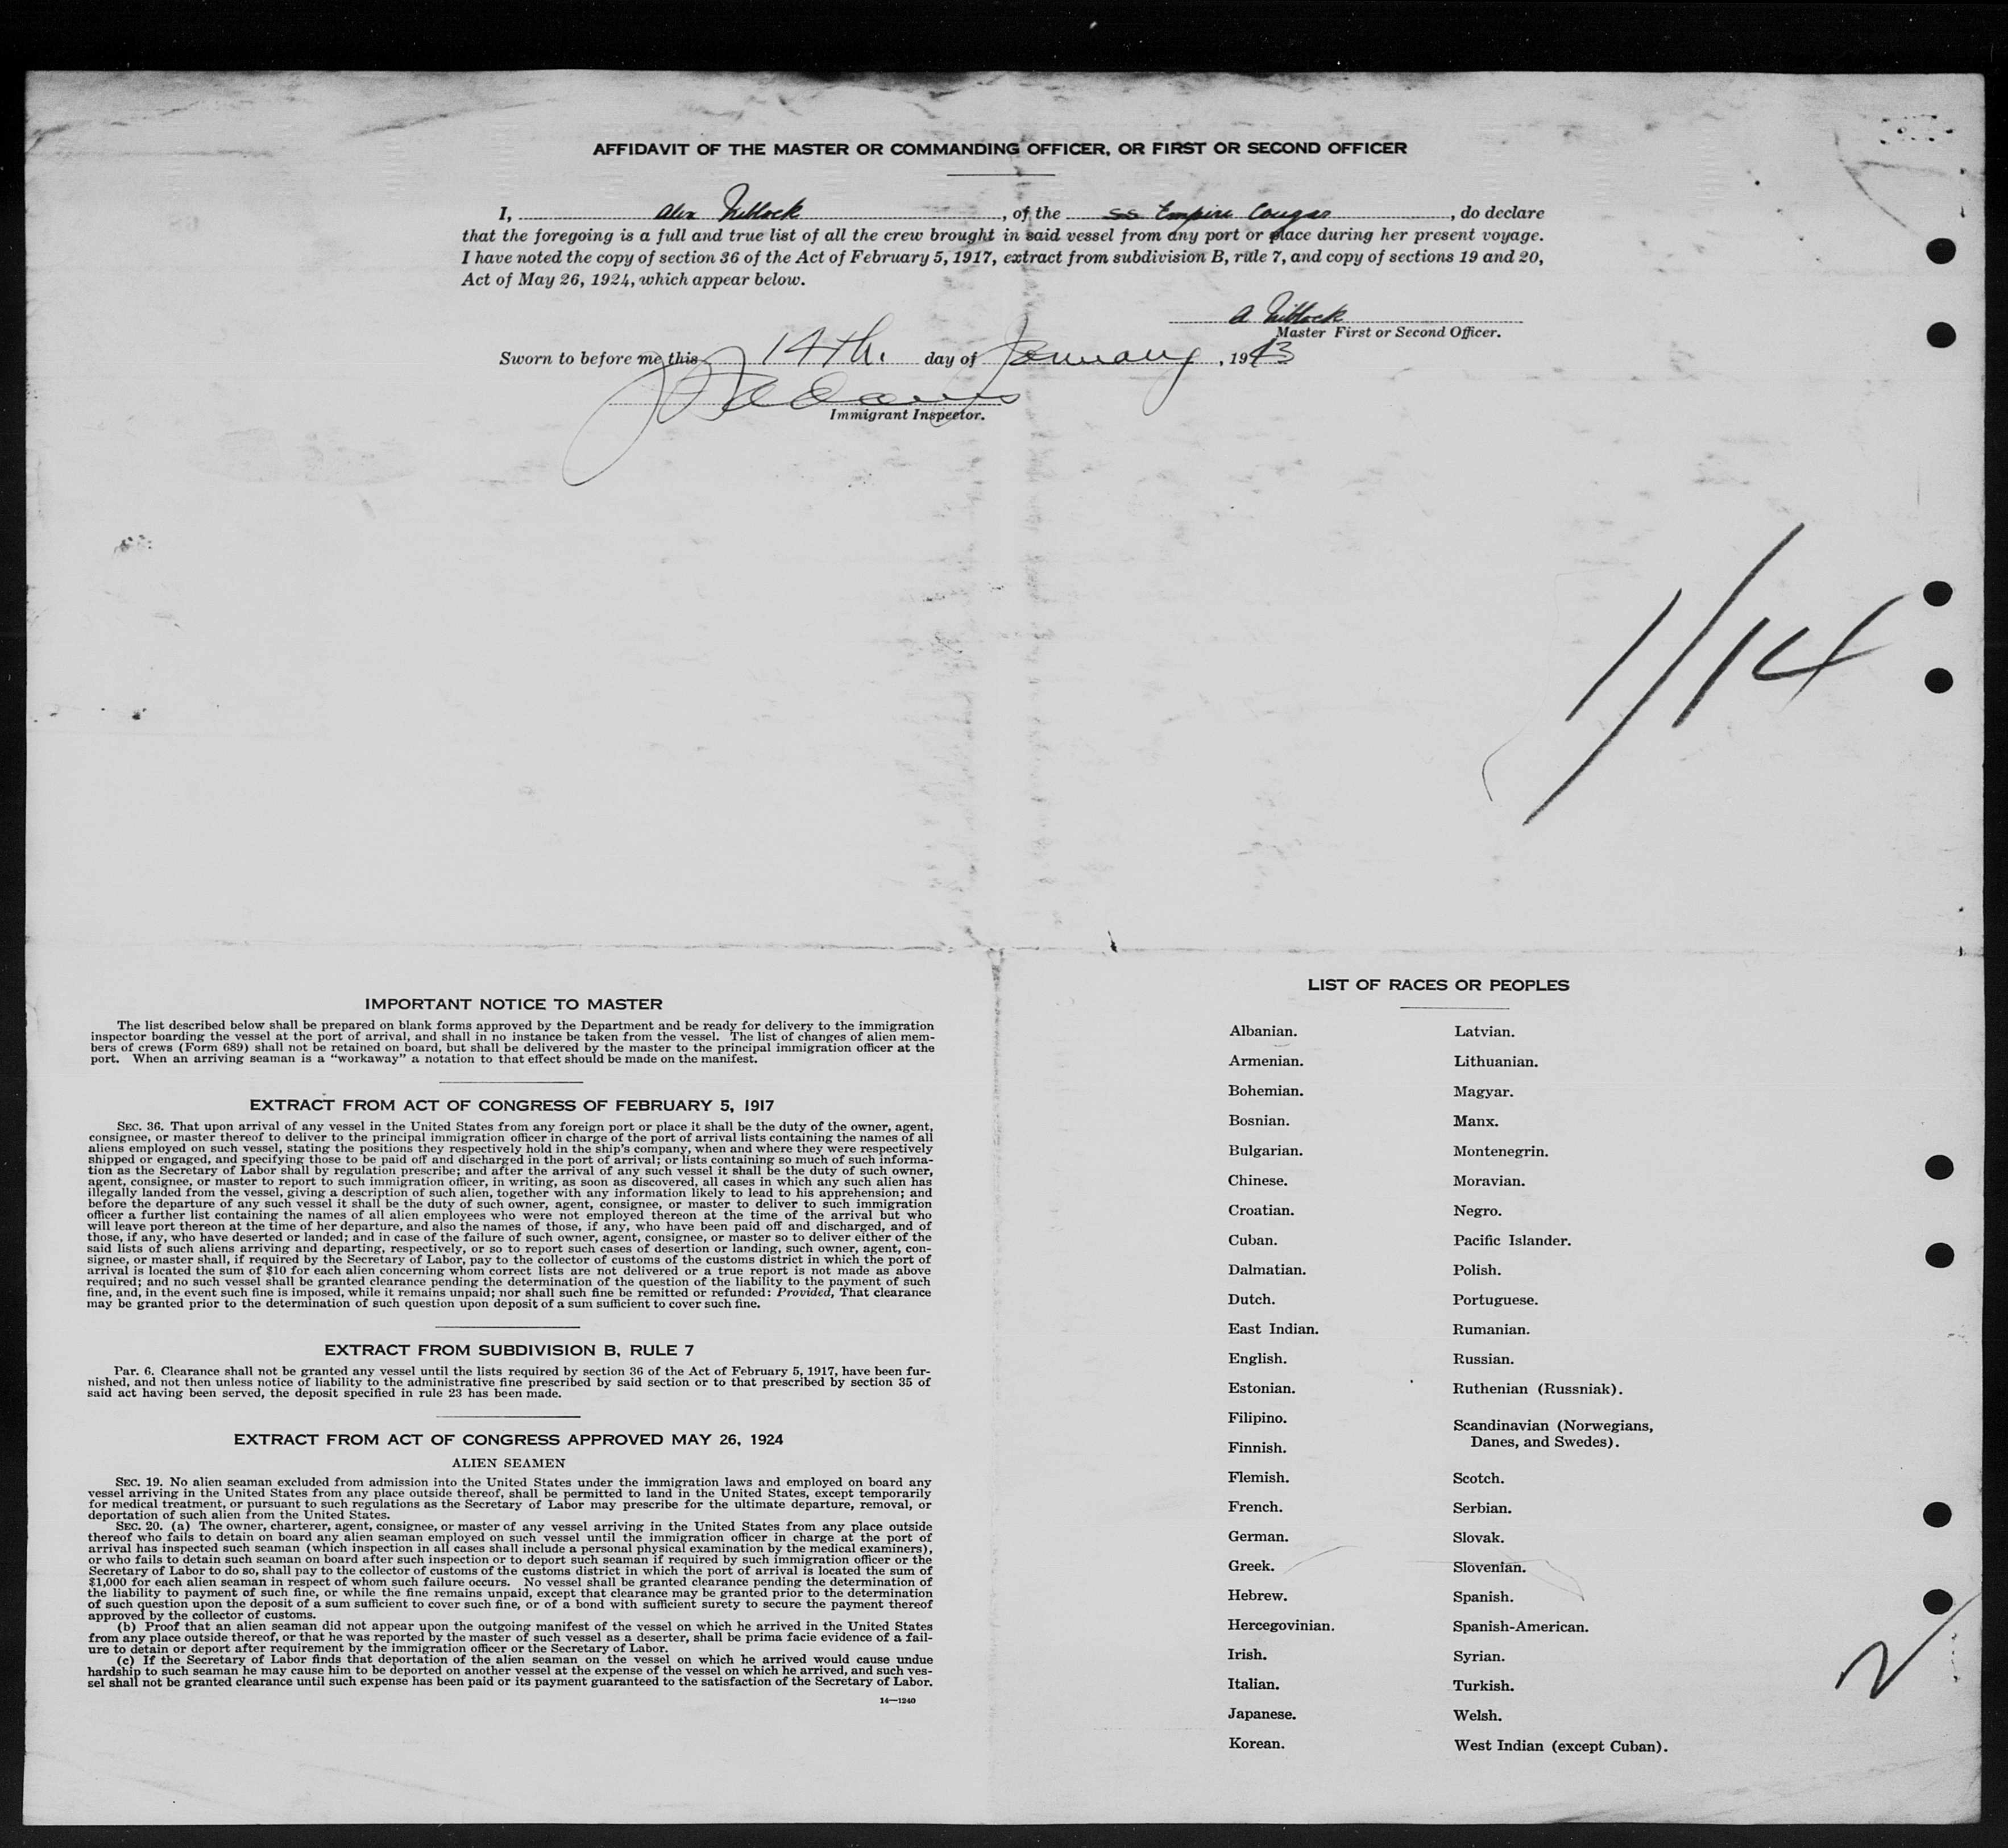 AFFIDAVIT OF THE MASTER OR COMMANDING OFFICER, OR FIRST OR SECOND OFFICER
I, Alex Niblock, of the SS Empire Cougar, do declare
that the foregoing is a full and true list of all the crew brought in said vessel from any port or place during her present voyage.
I have noted the copy of section 36 of the Act of February 5, 1917, extract from subdivision B, rule 7, and copy of sections 19 and 20,
Act of May 26, 1924, which appear below.
A Niblock
Master First or Second Officer.
Sworn to before me this 14th. day of January, 1943
Adams
Immigrant Inspector.
1/14
IMPORTANT NOTICE TO MASTER
The list described below shall be prepared on blank forms approved by the Department and be ready for delivery to the immigration
inspector boarding the vessel at the port of arrival, and shall in no instance be taken from the vessel. The list of changes of alien mem-
bers of crews (Form 689) shall not be retained on board, but shall be delivered by the master to the principal immigration officer at the
port. When an arriving seaman is a "workaway" a notation to that effect should be made on the manifest.
EXTRACT FROM ACT OF CONGRESS OF FEBRUARY 5, 1917
SEC. 36. That upon arrival of any vessel in the United States from any foreign port or place it shall be the duty of the owner, agent,
consignee, or master thereof to deliver to the principal immigration officer in charge of the port of arrival lists containing the names of all
aliens employed on such vessel, stating the positions they respectively hold in the ship's company, when and where they were respectively
shipped or engaged, and specifying those to be paid off and discharged in the port of arrival; or lists containing so much of such informa-
tion as the Secretary of Labor shall by regulation prescribe; and after the arrival of any such vessel it shall be the duty of such owner,
agent, consignee, or master to report to such immigration officer, in writing, as soon as discovered, all cases in which any such alien has
illegally landed from the vessel, giving a description of such alien, together with any information likely to lead to his apprehension; and
before the departure of any such vessel it shall be the duty of such owner, agent, consignee, or master to deliver to such immigration
officer a further list containing the names of all alien employees who were not employed thereon at the time of the arrival but who
will leave port thereon at the time of her departure, and also the names of those, if any, who have been paid off and discharged, and of
those, if any, who have deserted or landed; and in case of the failure of such owner, agent, consignee, or master so to deliver either of the
said lists of such aliens arriving and departing, respectively, or so to report such cases of desertion or landing, such owner, agent, con-
signee, or master shall, if required by the Secretary of Labor, pay to the collector of customs of the customs district in which the port of
arrival is located the sum of $10 for each alien concerning whom correct lists are not delivered or a true report is not made as above
required; and no such vessel shall be granted clearance pending the determination of the question of the liability to the payment of such
fine, and, in the event such fine is imposed, while it remains unpaid; nor shall such fine be remitted or refunded: Provided, That clearance
may be granted prior to the determination of such question upon deposit of a sum sufficient to cover such fine.
EXTRACT FROM SUBDIVISION B, RULE 7
Par. 6. Clearance shall not be granted any vessel until the lists required by section 36 of the Act of February 5, 1917, have been fur-
nished, and not then unless notice of liability to the administrative fine prescribed by said section or to that prescribed by section 35 of
said act having been served, the deposit specified in rule 23 has been made.
EXTRACT FROM ACT OF CONGRESS APPROVED MAY 26, 1924
ALIEN SEAMEN
SEC. 19. No alien seaman excluded from admission into the United States under the immigration laws and employed on board any
vessel arriving in the United States from any place outside thereof, shall be permitted to land in the United States, except temporarily
for medical treatment, or pursuant to such regulations as the Secretary of Labor may prescribe for the ultimate departure, removal, or
deportation of such alien from the United States.
SEC. 20. (a) The owner, charterer, agent, consignee, or master of any vessel arriving in the United States from any place outside
thereof who fails to detain on board any alien seaman employed on such vessel until the immigration officer in charge at the port of
arrival has inspected such seaman (which inspection in all cases shall include a personal physical examination by the medical examiners),
or who fails to detain such seaman on board after such inspection or to deport such seaman if required by such immigration officer or the
Secretary of Labor to do so, shall pay to the collector of customs of the customs district in which the port of arrival is located the sum of
$1,000 for each alien seaman in respect of whom such failure occurs. No vessel shall be granted clearance pending the determination of
the liability to payment of such fine, or while the fine remains unpaid, except that clearance may be granted prior to the determination
of such question upon the deposit of a sum sufficient to cover such fine, or of a bond with sufficient surety to secure the payment thereof
approved by the collector of customs.
(b) Proof that an alien seaman did not appear upon the outgoing manifest of the vessel on which he arrived in the United States
from any place outside thereof, or that he was reported by the master of such vessel as a deserter, shall be prima facie evidence of a fail-
ure to detain or deport after requirement by the immigration officer or the Secretary of Labor.
(c) If the Secretary of Labor finds that deportation of the alien seaman on the vessel on which he arrived would cause undue
hardship to such seaman he may cause him to be deported on another vessel at the expense of the vessel on which he arrived, and such ves-
sel shall not be granted clearance until such expense has been paid or its payment guaranteed to the satisfaction of the Secretary of Labor.
14—1240
LIST OF RACES OR PEOPLES
Albanian.
Armenian.
Bohemian.
Bosnian.
Bulgarian.
Chinese.
Croatian.
Cuban.
Dalmatian.
Dutch.
East Indian.
English.
Estonian.
Filipino.
Finnish.
Flemish.
French.
German.
Greek.
Hebrew.
Hercegovinian.
Irish.
Italian.
Japanese.
Korean.
Latvian.
Lithuanian.
Magyar.
Manx.
Montenegrin.
Moravian.
Negro.
Pacific Islander.
Polish.
Portuguese.
Rumanian.
Russian.
Ruthenian (Russniak).
Scandinavian (Norwegians,
Danes, and Swedes).
Scotch.
Serbian.
Slovak.
Slovenian.
Spanish.
Spanish-American.
Syrian.
Turkish.
Welsh.
West Indian (except Cuban).